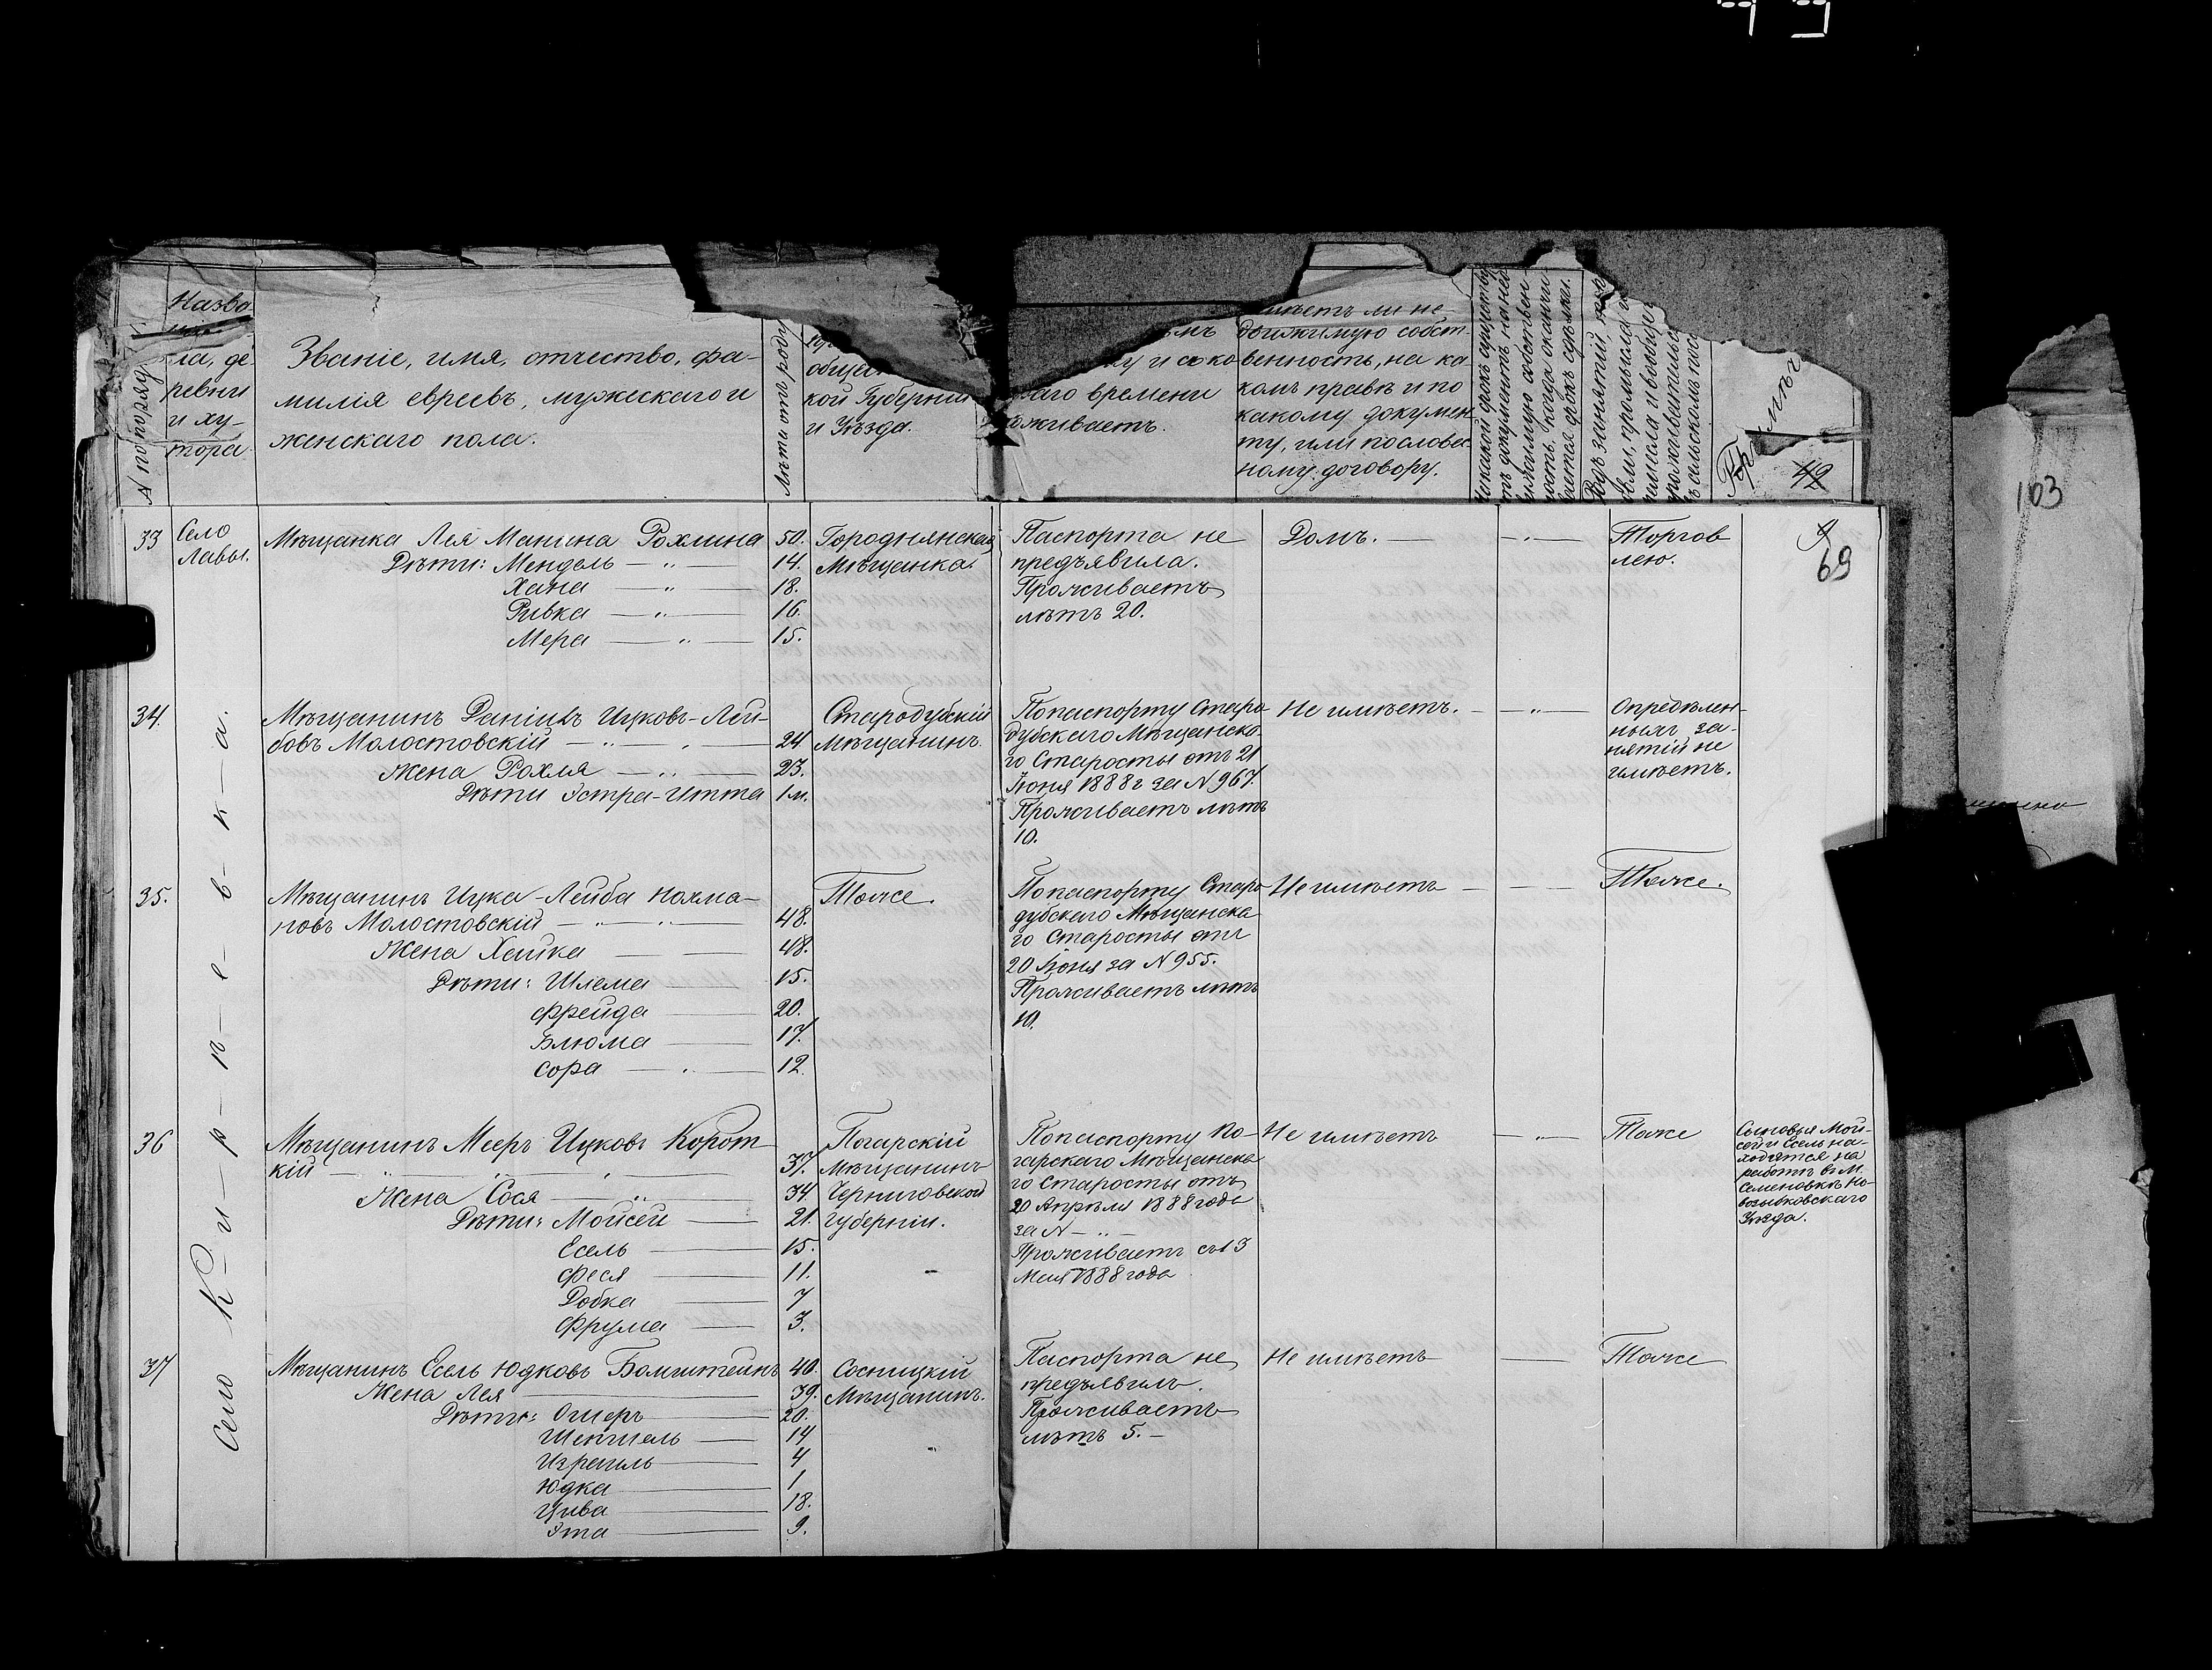 № по поряд
Назва
ла, де
ревни
и ху-
тора.
Званіе, имя, отчество, фа-
милія евреевъ, мужескаго и
женскаго пола.
Лѣта отъ роду
кой Губерніи
и Уѣзда.
го времени
оживаетъ.
имѣетъ ли не-
движимую собст-
венность, на ка-
комъ правѣ и по
какому докумен
ту, или по словес
ному договору.
42
103
9
69
33
Село
Лавы.
Мѣщанка Лея Манина Рохлина 50.
Дѣти: Мендель — „ — 14.
Хана — „ — 18.
Ривка — „ — 16.
Мера — „ — 15.
Городнянская
Мѣщанка.
Паспорта не
предъявила.
Проживаетъ
лѣтъ 20.
Домъ. —
— „ —
Торгов
лею.
Село Кирпевка.
34.
Мѣщанинъ Ицковъ-Лей-
бовъ Молостовскій — „ — „ — 24
Жена Рохля — „ — 23.
Дѣти Эстра-Итта 1 м.
Стародубскій
Мѣщанинъ.
По паспорту Старо
дубскаго Мѣщанска-
го Старосты отъ 21
Іюня 1888 г за № 967.
Проживаетъ лѣтъ
10.
Не имѣетъ. —
— „ —
Опредѣлен-
ныхъ за-
нятій не
имѣетъ.
35.
Мѣщанинъ Ицка-Лейба Нохма-
новъ Молостовскій — „ — „ — 48.
Жена Хайка — — 48.
Дѣти: Шлема — 15.
Фрейда — 20.
Блюма — 17.
Сора — „ — 12.
Тоже.
По паспорту Старо
дубскаго Мѣщанска
го Старосты отъ
20 Іюня за № 955.
Проживаетъ лѣтъ
10.
Не имѣетъ —
— —
Тоже.
36
Мѣщанинъ Мееръ Ицковъ Корот-
кій — „ — „ — 37.
Жена Сося — „ — 34.
Дѣти: Мойсей — 21.
Есель — 15.
Феся — 11.
Добка — 7
Фрума — 3.
Погарскій
Мѣщанинъ
Черниговской
губерніи.
По паспорту По-
гарскаго Мѣщанска
го Старосты отъ
20 Апрѣля 1888 года
за № — „ —
Проживаетъ съ 13
Мая 1888 года
Не имѣетъ
— „ —
Тоже
Сыновья Мой-
сей и Есель на-
ходятся на
работѣ въ М.
Семеновкѣ Но-
возыбковскаго
Уѣзда.
37
Мѣщанинъ Есель Юдковъ Бомштейнъ 40.
Жена Лея — 39.
Дѣти: Ошеръ — 20.
Шепшель — 14
Израиль — 4
Юдка — 1
Цива — 18.
Эта — 9.
Сосницкій
Мѣщанинъ.
Паспорта не
предъявилъ.
Проживаетъ
лѣтъ 5. —
Не имѣетъ
—
Тоже